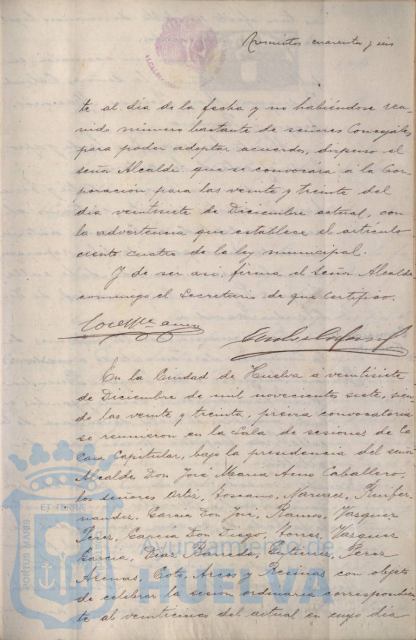 Doscientos cuarenta y seis
te al día de la fecha y no habiéndose reu-
nido número bastante de señores Concejales
para poder adoptar acuerdo, dispuso el
señor Alcalde que se convocara á la Cor-
poración para las veinte y treinta del
día veintisiete de Diciembre actual, con
la advertencia que establece el artículo
ciento cuatro de la ley municipal.
Y de ser así, firma el Señor Alcalde
conmigo el Secretario de que certifico.
En la Ciudad de Huelva a veintisiete
de Diciembre de mil novecientos siete, sien-
do las veinte y treinta, previa convocatoria
se reunieron en la Sala de sesiones de la
Casa Capitular, bajo la presidencia del señor
Alcalde Don José María Amo Caballero,
los señores Ortiz, Toscano, Narvaez, Fer-
nandez, García Don José, Ramos, Vazquez
Perez, García Don Diego, Torres, Vazquez
García, Diaz, Quintero, Perez
Arenas, Coto, Arcos y Recinas con objeto
de celebrar la sesión ordinaria correspondien-
te al veinticinco del actual en cuyo día
PORTUS MARIS
ET TERRAE
Ayuntamiento de
HUELVA